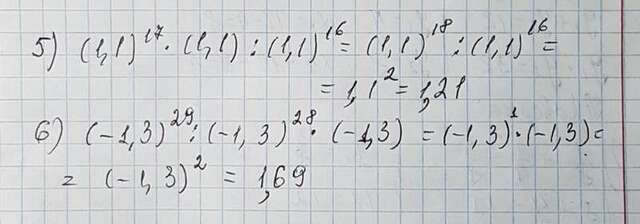 5) (1,1)¹⁷ · (1,1) : (1,1)¹⁶ = (1,1)¹⁸ : (1,1)¹⁶ =
= 1,1² = 1,21
6) (-1,3)²⁹ : (-1,3)²⁸ · (-1,3) = (-1,3)¹ · (-1,3) =
= (-1,3)² = 1,69